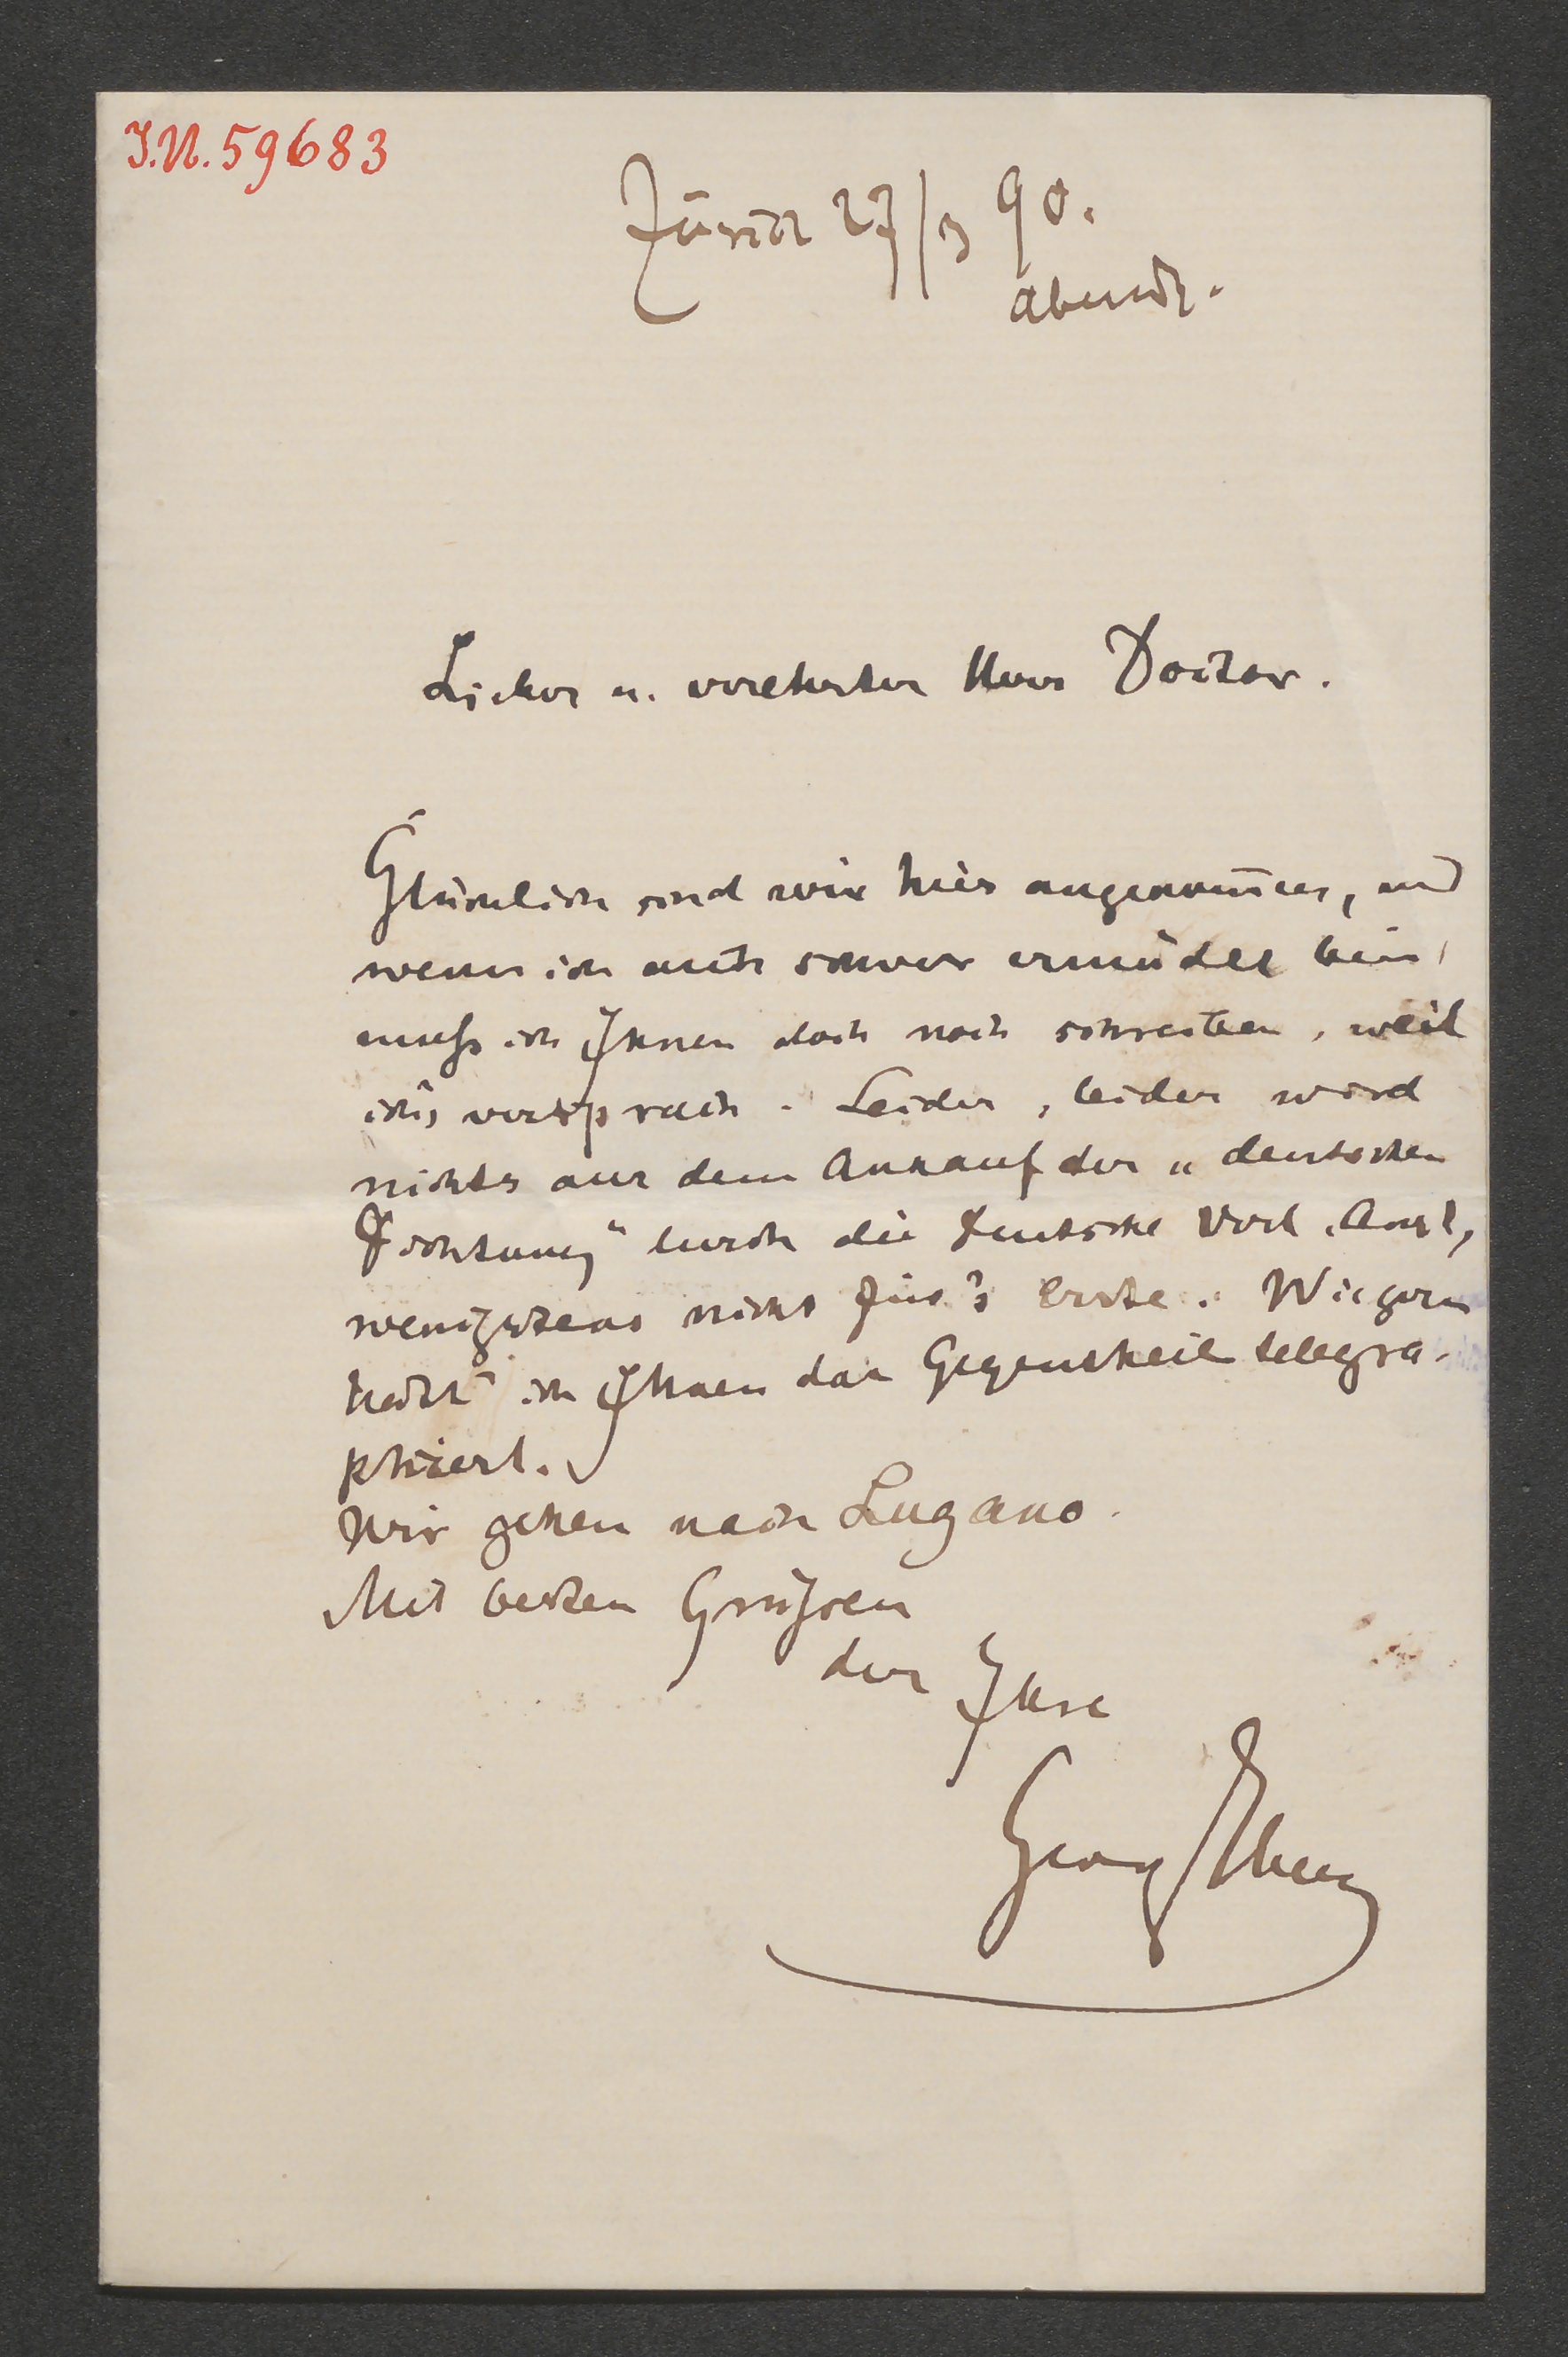 J.N. 59683
Zürich 27/3 90.
Abends.
Lieber u. verehrter Herr Doctor.
Glücklich sind wir hier angekom̄en, und
wenn ich auch schwer ermüdet bin,
muß ich Ihnen doch noch schreiben, weil
ich's versprach. Leider, leider wird
nichts aus dem Ankauf der „deutschen
Dichtung" durch die Deutsche Verl. Anst,
wenigstens nicht für's Erste. Wie gern
hätt' ich Ihnen das Gegentheil telegra-
phiert.
Wir gehen nach Lugano.
Mit besten Grüßen
der Ihre
Georg Ebers